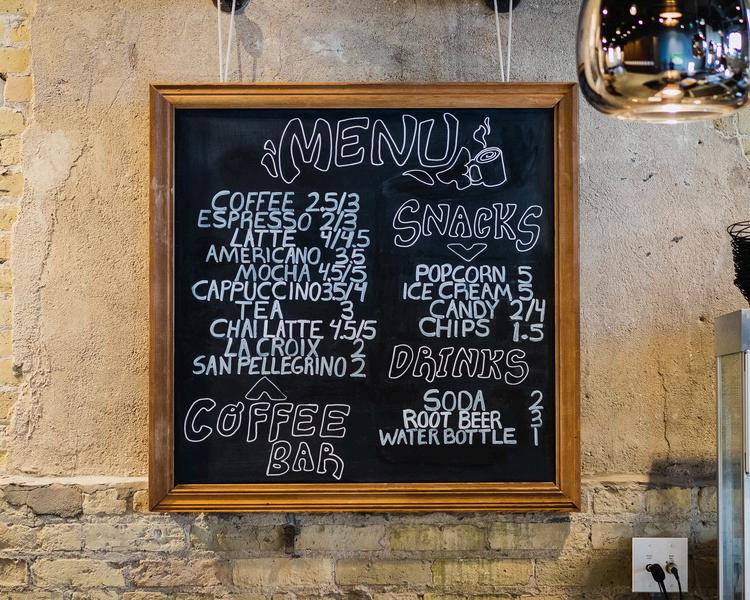 MENU
COFFEE 2.5/3
ESPRESSO 2/3
LATTE 4/4.5
AMERICANO 3.5
MOCHA 4.5/5
CAPPUCCINO 3.5/4
TEA 3
CHAI LATTE 4.5/5
LA CROIX 2
SAN PELLEGRINO 2
COFFEE
BAR
SNACKS
POPCORN 5
ICE CREAM 5
CANDY 2/4
CHIPS 1.5
DRINKS
SODA 2
ROOT BEER 3
WATER BOTTLE 1